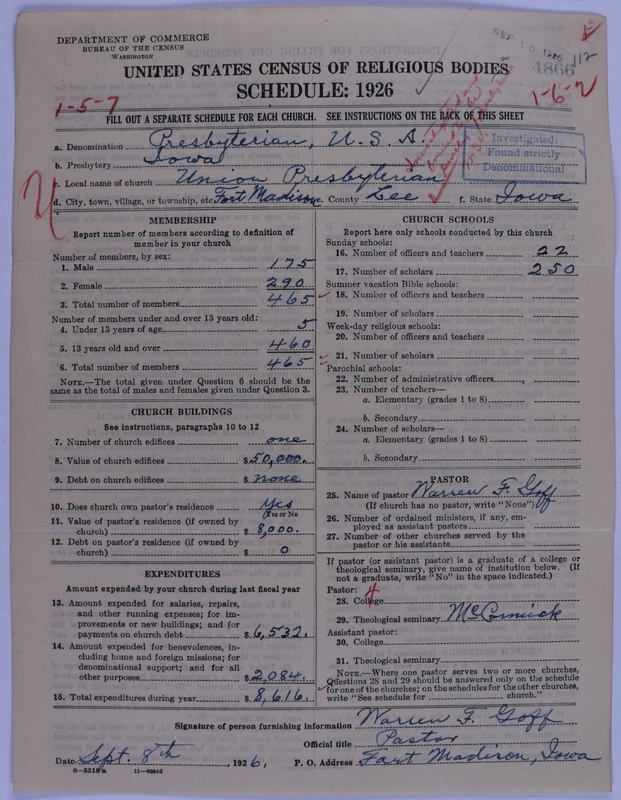 DEPARTMENT OF COMMERCE
BUREAU OF THE CENSUS
WASHINGTON
SEP 10 1926
112
4866
UNITED STATES CENSUS OF RELIGIOUS BODIES
SCHEDULE: 1926
1-5-7
1-6-2
FILL OUT A SEPARATE SCHEDULE FOR EACH CHURCH. SEE INSTRUCTIONS ON THE BACK OF THIS SHEET
Investigated:
Found strictly
Denominational
a. Denomination Presbyterian, U. S. A.
b. Presbytery Iowa
c. Local name of church Union Presbyterian
d. City, town, village, or township, etc. Fort Madison e. County Lee f. State Iowa
MEMBERSHIP
Report number of members according to definition of
member in your church
Number of members, by sex:
1. Male 175
2. Female 290
3. Total number of members 465
Number of members under and over 13 years old:
4. Under 13 years of age 5
5. 13 years old and over 460
6. Total number of members 465
NOTE.—The total given under Question 6 should be the
same as the total of males and females given under Question 3.
CHURCH BUILDINGS
See instructions, paragraphs 10 to 12
7. Number of church edifices one
8. Value of church edifices $50,000.
9. Debt on church edifices $ none
10. Does church own pastor's residence Yes
(Yes or No)
11. Value of pastor's residence (if owned by
church) $ 8,000.
12. Debt on pastor's residence (if owned by
church) $ 0
EXPENDITURES
Amount expended by your church during last fiscal year
13. Amount expended for salaries, repairs,
and other running expenses; for im-
provements or new buildings; and for
payments on church debt $ 6,532.
14. Amount expended for benevolences, in-
cluding home and foreign missions; for
denominational support; and for all
other purposes $ 2,084.
15. Total expenditures during year $ 8,616.
CHURCH SCHOOLS
Report here only schools conducted by this church
Sunday schools:
16. Number of officers and teachers 22
17. Number of scholars 250
Summer vacation Bible schools:
18. Number of officers and teachers
19. Number of scholars
Week-day religious schools:
20. Number of officers and teachers
21. Number of scholars
Parochial schools:
22. Number of administrative officers
23. Number of teachers—
a. Elementary (grades 1 to 8)
b. Secondary
24. Number of scholars—
a. Elementary (grades 1 to 8)
b. Secondary
PASTOR
25. Name of pastor Warren F. Goff
(If church has no pastor, write "None")
26. Number of ordained ministers, if any, em-
ployed as assistant pastors
27. Number of other churches served by the
pastor or his assistants
If pastor (or assistant pastor) is a graduate of a college or
theological seminary, give name of institution below. (If
not a graduate, write "No" in the space indicated.)
Pastor: 4
28. College
29. Theological seminary McCormick
Assistant pastor:
30. College
31. Theological seminary
NOTE.—Where one pastor serves two or more churches,
Questions 28 and 29 should be answered only on the schedule
for one of the churches; on the schedules for the other churches,
write "See schedule for church."
Signature of person furnishing information Warren F. Goff
Official title Pastor
Date Sept. 8th, 1926. P. O. Address Fort Madison, Iowa
8—5519a 11—9024d